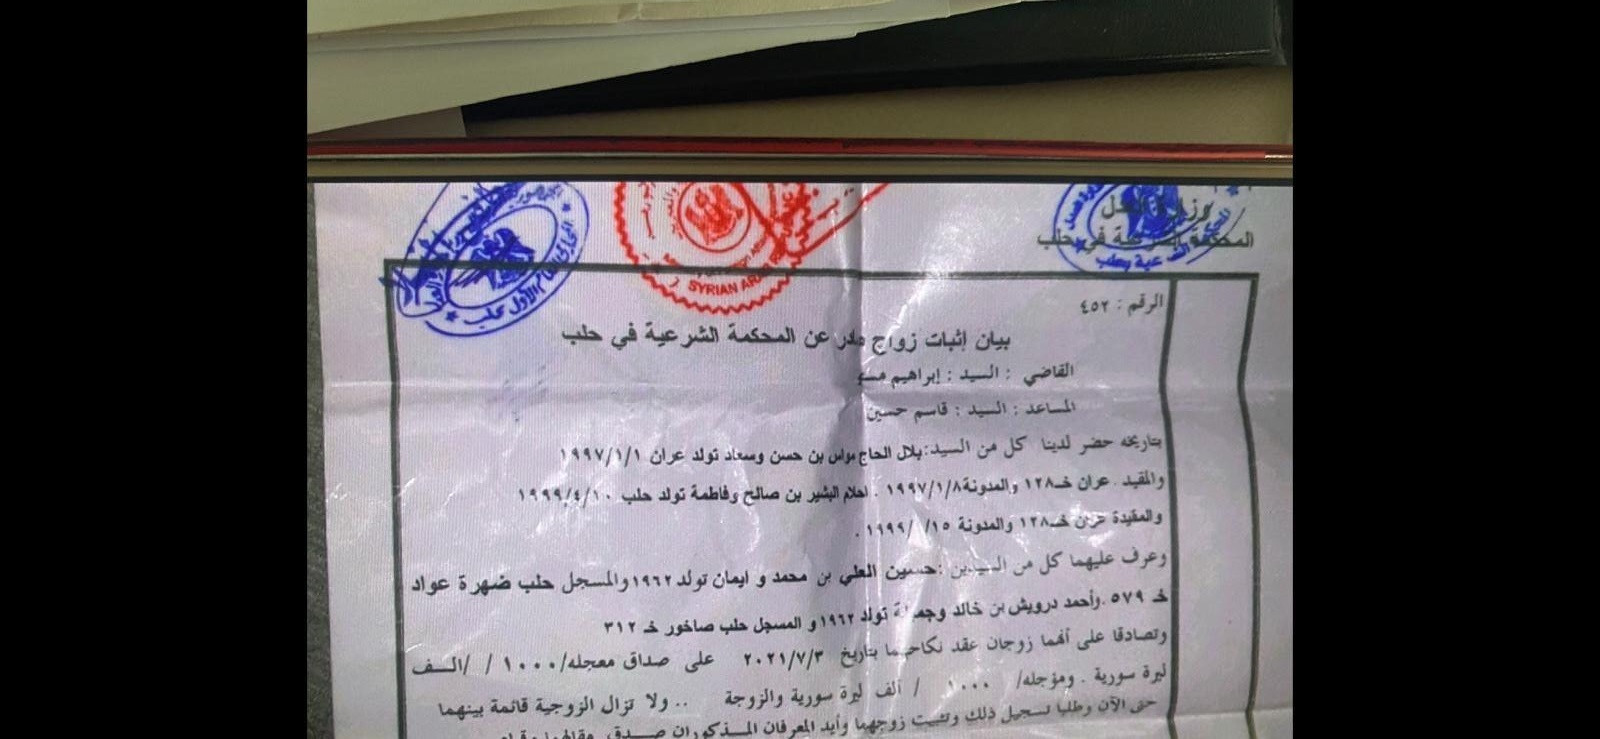 وزارة العدل
المحكمة الشرعية في حلب
SYRIAN ARAB
الرقم : ٤٥٢
بيان إثبات زواج صادر عن المحكمة الشرعية في حلب
القاضي : السيد : إبراهيم
المساعد : السيد : قاسم حسين
بتاريخه حضر لدينا كل من السيد:بلال الحاج مواس بن حسن وسعاد تولد عران ١٩٩٧/١/١
والمقيد . عران خـ١٢٨ والمدونة١٩٩٧/١/٨ . احلام البشير بن صالح وفاطمة تولد حلب ١٩٩٩/٤/١٠
والمقيدة عران خـ١٢٨ والمدونة ١٥/ /١٩٩٩ .
وعرف عليهما كل من السيدين :حسين العلي بن محمد و ايمان تولد ١٩٦٢والمسجل حلب ضهرة عواد
خـ ٥٧٩ .وأحمد درويش بن خالد وجميلة تولد ١٩٦٢و المسجل حلب صاخور خـ ٣١٢
وتصادقا على أنهما زوجان عقد نكاحهما بتاريخ ٢٠٢١/٧/٣ على صداق معجله/١٠٠٠ / /الــف
ليرة سورية . ومؤجله/ ١٠٠٠ / ألف ليرة سورية والزوجة .. ولا تزال الزوجية قائمة بينهما
حتى الآن وطلبا تسجيل ذلك وتثبيت زوجهما وأيد المعرفان المـذكوران صـدق